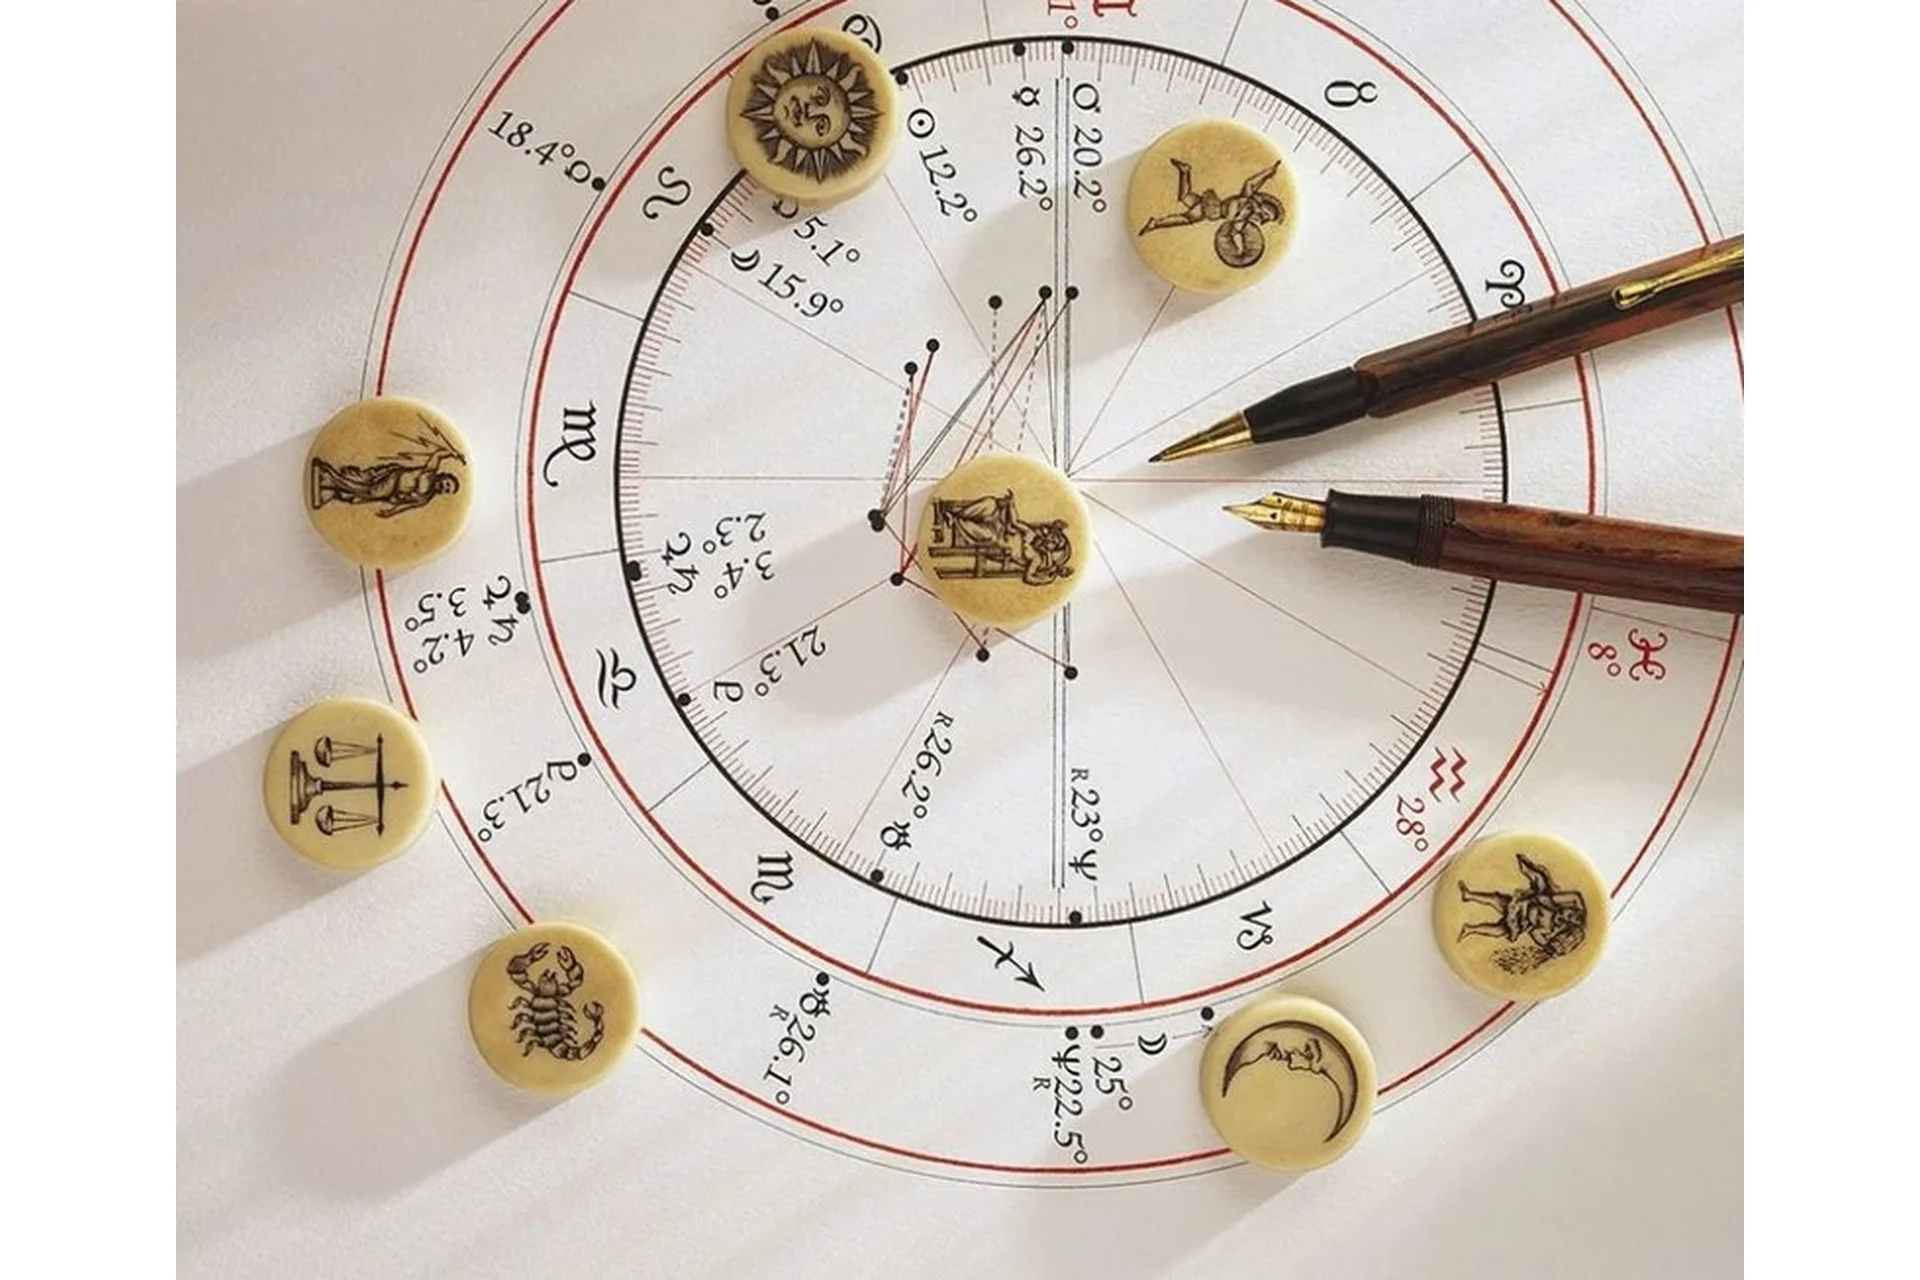 ♊
1°
♋
♉
18.4°
♌
☉ 12.2°
☿ 26.2°
♂ 20.2°
5.1°
☽ 15.9°
♈
♍
♃ 2.3°
♄ 3.4°
♃ 3.5°
♄ 4.2°
♎
♇ 21.3°
♇ 21.3°
R 26.2° ♅
R 23° ♆
♏
♐
♑
♒ 28°
♓ 8°
♅ 26.1°
R
♆ 22.5°
R
25°
☽